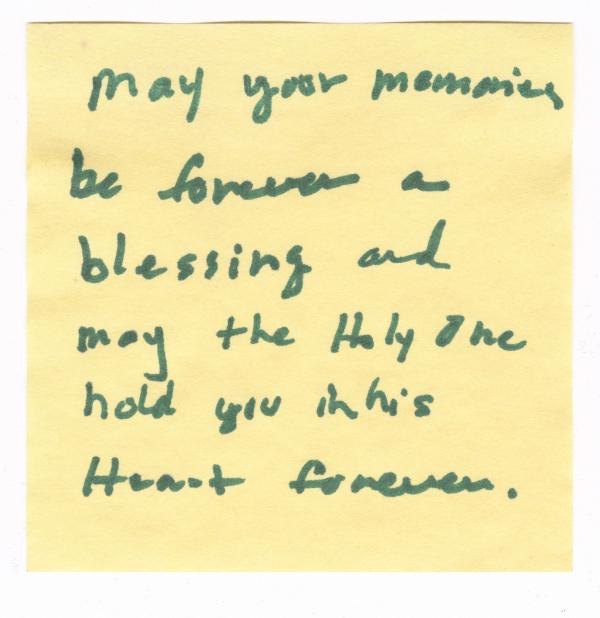 May your memories
be forever a
blessing and
may the Holy One
hold you in his
Heart forever.